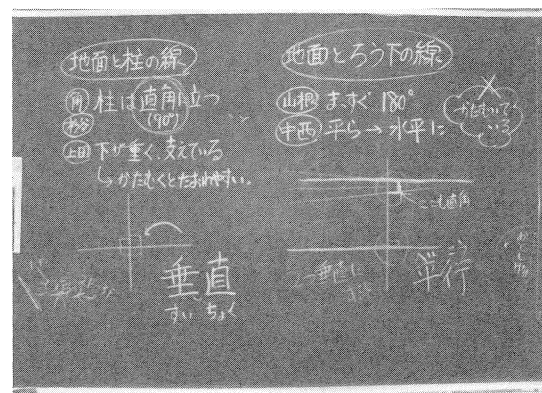 地面と柱の線
角 柱は直角に立つ
(90°)
上田 下が重く、支えている
↳かたむくとたおれやすい。
垂直
すいちょく
地面とろう下の線
山根 まっすぐ 180°
中西 平ら→水平に
かたむいて
いる
ここも直角
垂直に
平行